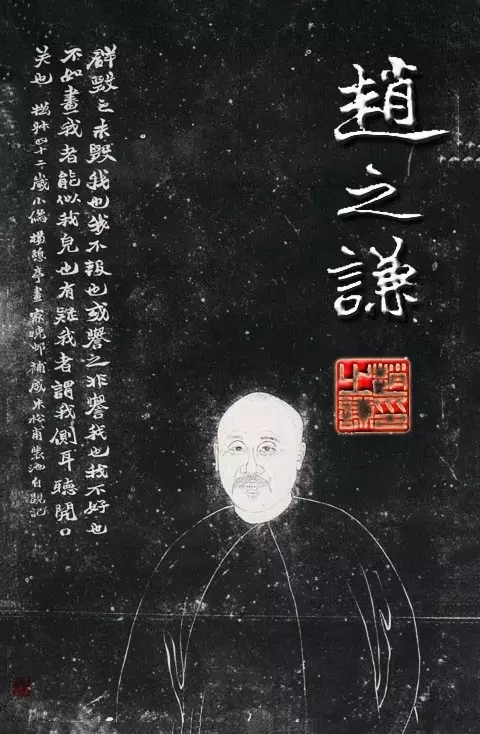 趙之謙
群毀之未毀我也我不報也或譽之非譽我也我不好也
不如畫我者能似我皃也有疑我者謂我側耳聽開口
笑也 撝叔四十二歲小像楊憩亭畫家曉邨補成朱松甫裝池自觀記